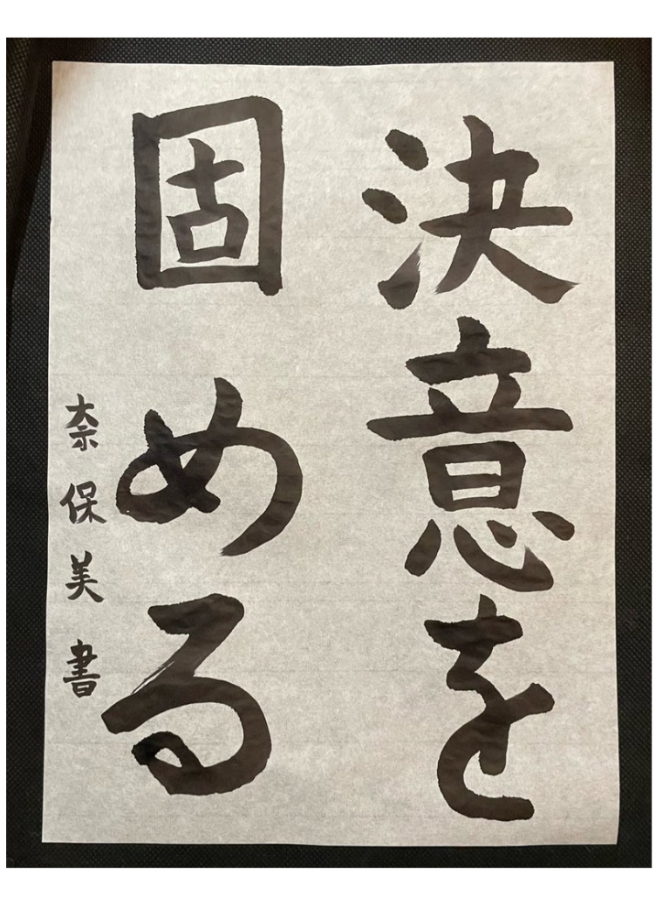 決意を
固める
奈保美書